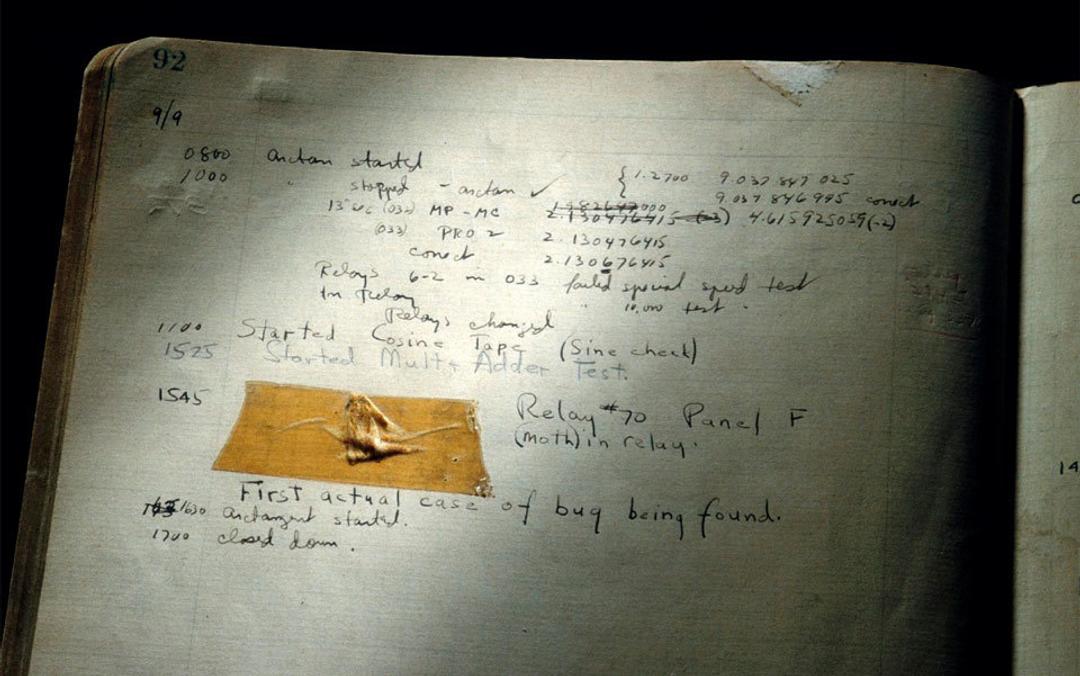 92
9/9
0800 arctan started
1000 " stopped - arctan ✓ { 1.2700 9.037 847 025
9.037 846 995 correct
13" (032) MP - MC 2.130476415 (-3) 4.615925059(-2)
(033) PRO 2 2.130476415
correct 2.130676415
Relays 6-2 in 033 failed special speed test
In Relay " 10,000 test "
Relays changed
1100 Started Cosine Tape (Sine check)
1525 Started Mult + Adder Test.
1545 Relay #70 Panel F
(moth) in relay.
First actual case of bug being found.
1630 arctangent started.
1700 closed down.
14